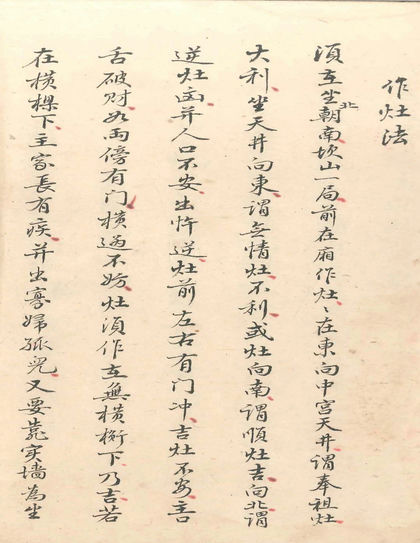 作灶法
須立坐北朝南坎山一局前在廂作灶灶在東向中宮天井謂奉祖灶
大利坐天井向東謂無情灶不利或灶向南謂順灶吉向北謂
逆灶凶并人口不安出忤逆灶前左右有门冲吉灶不安主口
舌破財如両傍有门橫過不妨灶須作在無橫桁下乃吉若
在橫樑下主家長有疾并出寡婦孤児又要靠实墙為坐